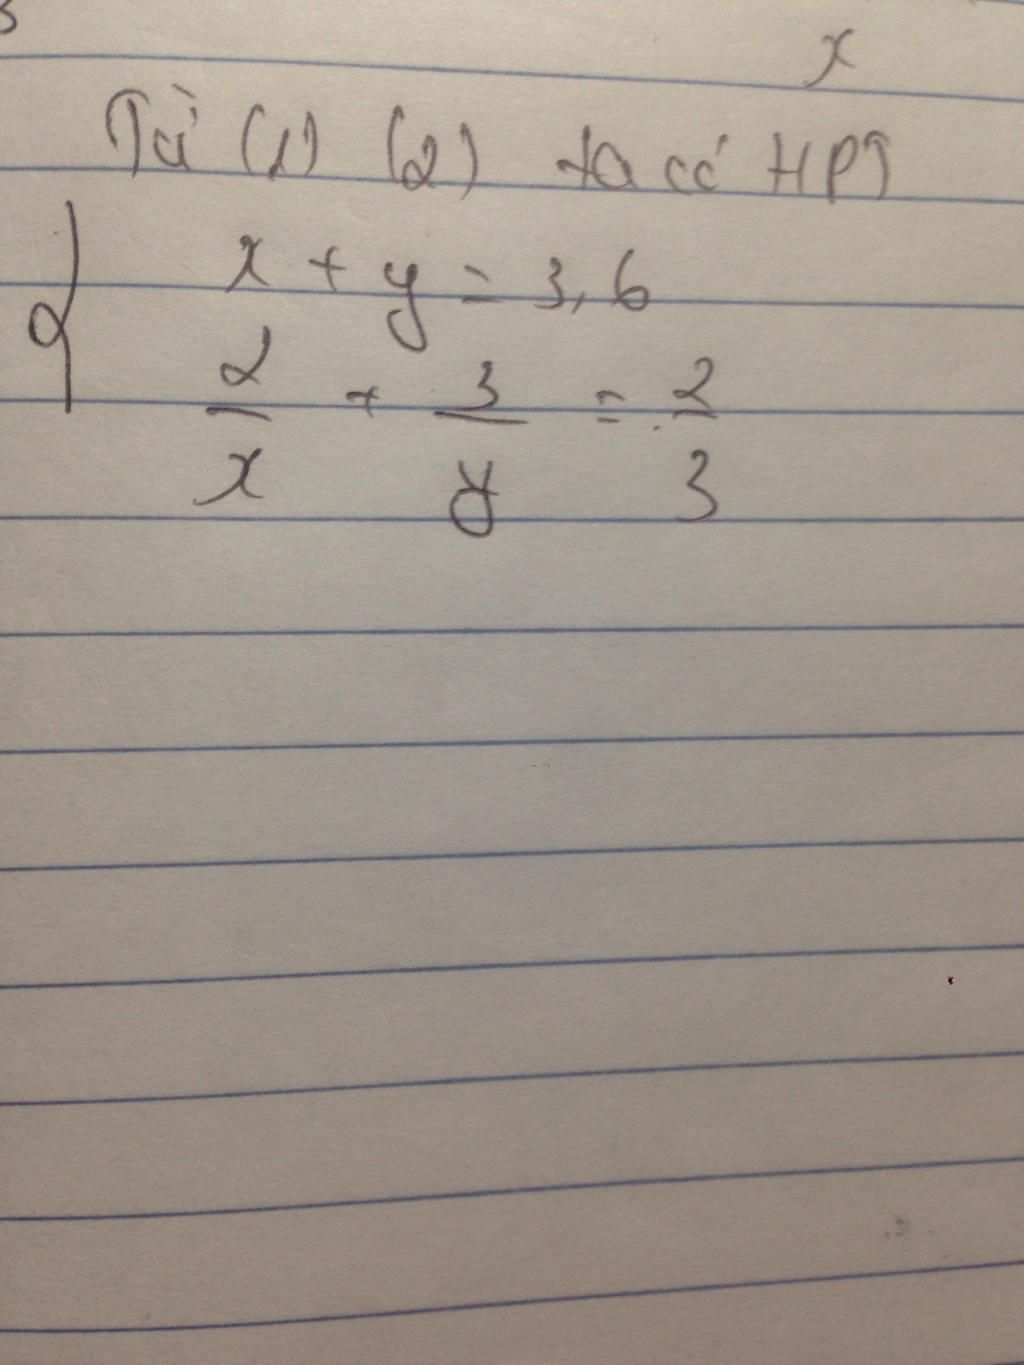 3
x
Từ (1) (2) ta có HPT
{ x + y = 3,6
2/x + 3/y = 2/3